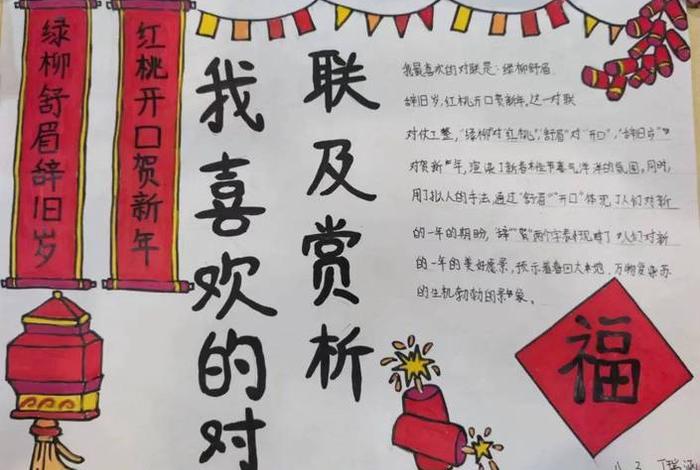 绿柳舒眉辞旧岁
红桃开口贺新年
我喜欢的对
联及赏析
我最喜欢的对联是:绿柳舒眉
辞旧岁,红桃开口贺新年。这一对联
对仗工整,“绿柳”对“红桃”,“舒眉”对“开口”,“辞旧岁”
对贺新年,渲染了新春佳节喜气洋洋的氛围。同时,
用了拟人的手法,通过“舒眉”“开口”体现了人们对新
的一年的期盼,“辞”“贺”两个字表现了人们对新
的一年的美好愿景,预示着春回大地、万物复苏
的生机勃勃的景象。
福